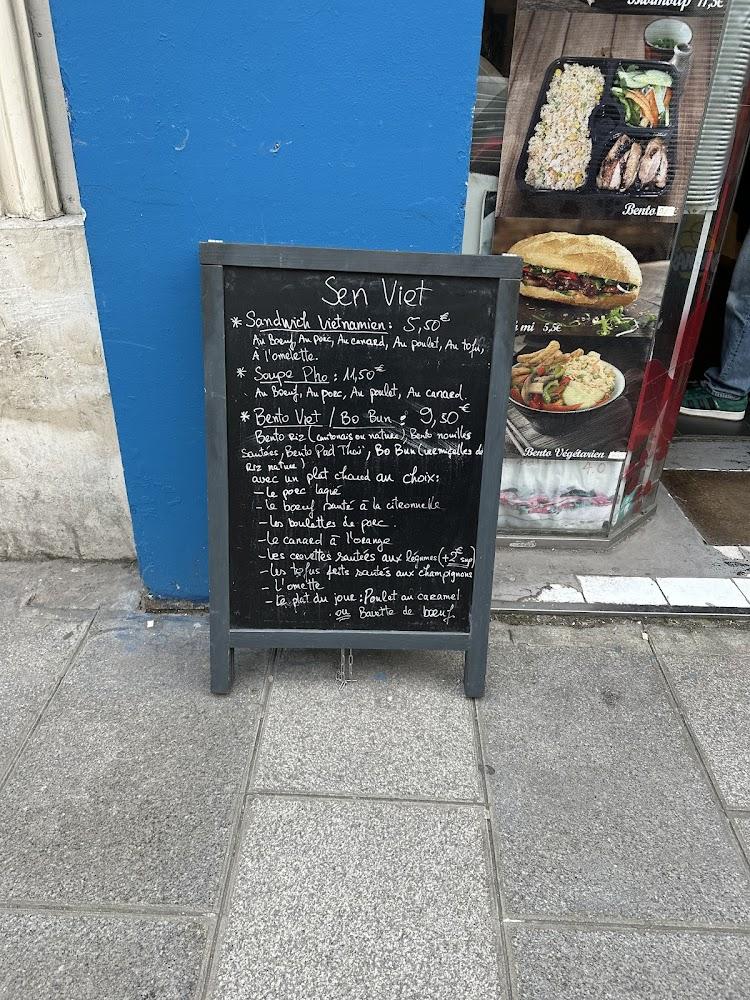 Sen Viet
* Sandwich Vietnamien : 5,50€
Au Boeuf, Au porc, Au canard, Au poulet, Au tofu,
À l'omelette.
* Soupe Pho : 11,50€
Au Boeuf, Au porc, Au poulet, Au canard.
* Bento Viet / Bo Bun : 9,50€
Bento Riz (cantonais ou nature), Bento nouilles
sautées, Bento Pad Thaï, Bo Bun (vermicelles de
Riz nature)
avec un plat chaud au choix:
- Le porc laqué
- Le bœuf sauté à la citronnelle
- Les boulettes de porc.
- Le canard à l'orange
- Les crevettes sautées aux légumes (+2€ sup)
- Les tofus frits sautés aux champignons
- L'omette
- Le plat du jour : Poulet au caramel
ou Bavette de bœuf
11,5€
Bento
mi 5,5€
Bento Végétarien